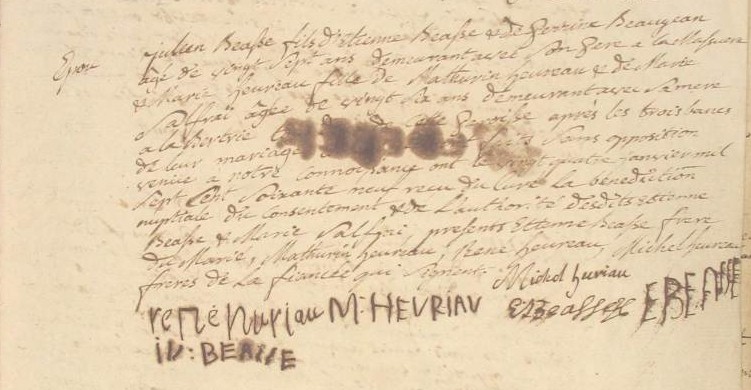 Epou
julien Beasse fils d'Etienne Beasse & de Perrine Beaugean
agé de vingt sept ans demeurant avec son pere a la Massuere
& Marie heureau fille de Mathurin heureau & de Marie
Salfrai agée de vingt six ans demeurant avec sa mere
a la de cette paroisse après les trois bancs
de leur mariage faits sans opposition
venue a notre connoissance ont le vingt quatre janvier mil
sept cent soixante neuf recu du curé la bénédiction
nuptiale du consentement & de L'authorité desdits etienne
Beasse & Marie Salfrai, presents Etienne Beasse frere
du Marié, Mathurin heureau, René heureau, Michel heureau
freres de la fiancée qui signent.
Michel huriau
rené huriau M. HEVRIAV E Beasse EBEASSE
iu: BEASSE